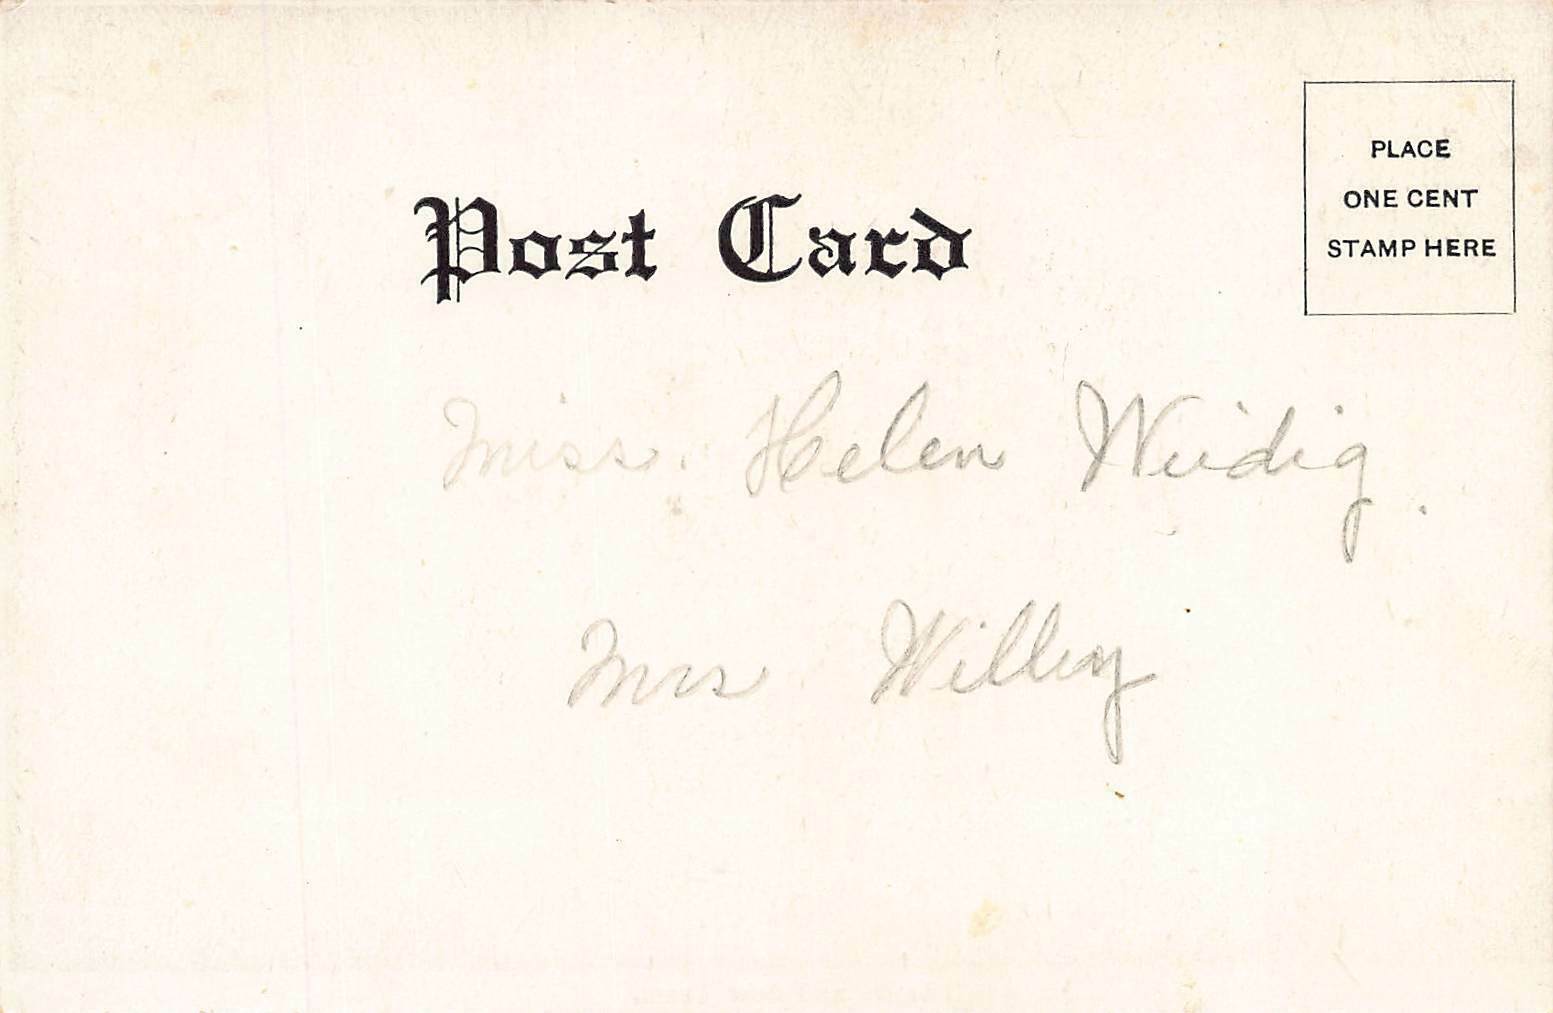 Post Card
PLACE
ONE CENT
STAMP HERE
Miss. Helen Weidig.
Mrs Willey